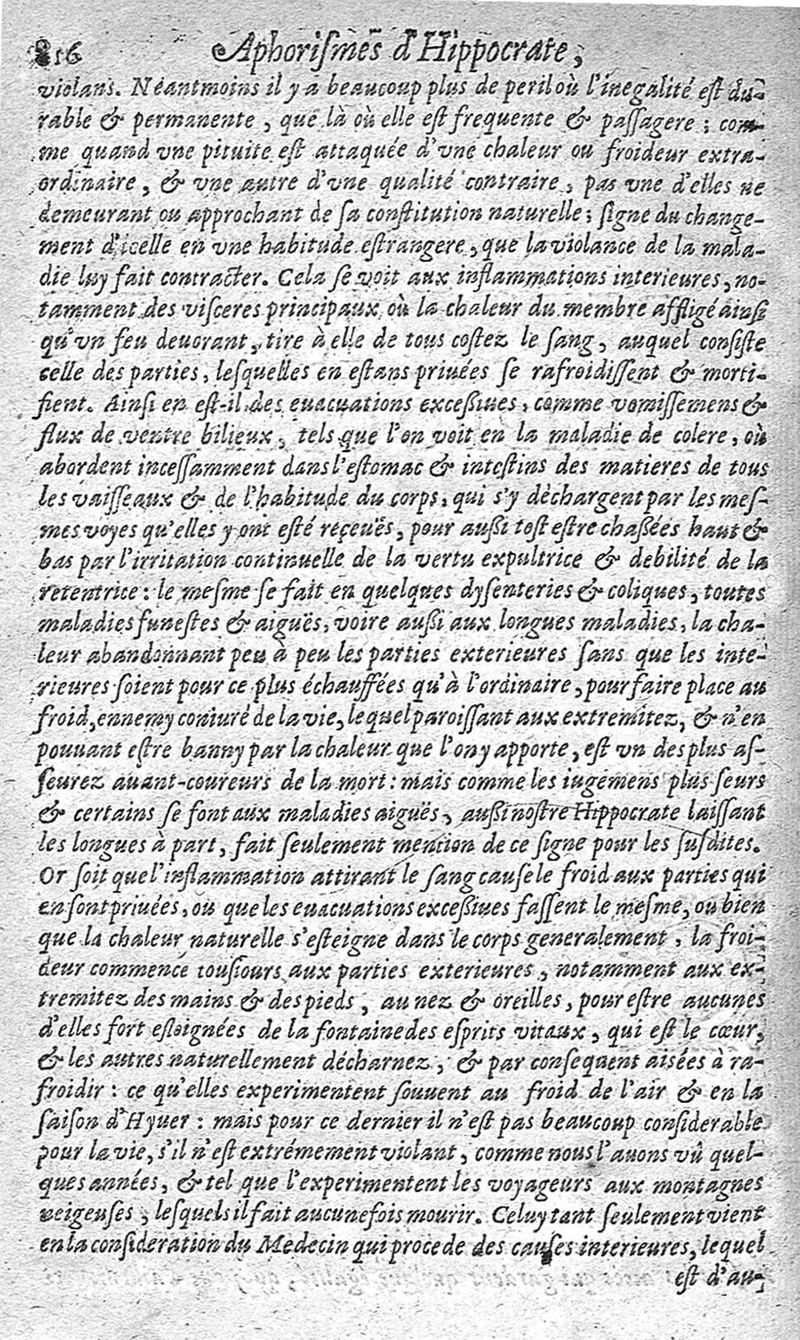 816 Aphoriſmes d'Hippocrate,
violans. Néantmoins il y a beaucoup plus de peril où l'inegalité eſt du-
rable & permanente, que là où elle eſt frequente & paſſagere; com-
me quand vne pituite est attaquée d'vne chaleur ou froideur extra-
ordinaire, & vne autre d'vne qualité contraire, pas vne d'elles ne
demeurant ou approchant de ſa conſtitution naturelle; ſigne du change-
ment d'icelle en vne habitude eſtrangere, que la violance de la mala-
die luy fait contracter. Cela ſe voit aux inflammations interieures, no-
tamment des viſceres principaux où la chaleur du membre affligé ainſi
qu'vn feu deuorant, tire à elle de tous coſtez le ſang, auquel conſiſte
celle des parties, leſquelles en eſtans priuées ſe rafroidiſſent & morti-
fient. Ainſi en est-il des euacuations exceßiues, comme vomiſſemens &
flux de ventre bilieux, tels que l'on voit en la maladie de colere, où
abordent inceſſamment dans l'eſtomac & inteſtins des matieres de tous
les vaiſſeaux & de l'habitude du corps, qui s'y déchargent par les meſ-
mes voyes qu'elles y ont eſté reçeuës, pour außi toſt eſtre chaßées haut &
bas par l'irritation continuelle de la vertu expultrice & debilité de la
retentrice: le meſme ſe fait en quelques dyſenteries & coliques, toutes
maladies funeſtes & aiguës, voire außi aux longues maladies, la cha-
leur abandonnant peu à peu les parties exterieures ſans que les inte-
rieures ſoient pour ce plus échauffées qu'à l'ordinaire, pour faire place au
froid, ennemy coniuré de la vie, lequel paroiſſant aux extremitez, & n'en
pouuant eſtre banny par la chaleur que l'on y apporte, eſt vn des plus aſ-
ſeurez auant-coureurs de la mort: mais comme les iugemens plus ſeurs
& certains ſe font aux maladies aiguës, außi noſtre Hippocrate laiſſant
les longues à part, fait ſeulement mention de ce ſigne pour les ſuſdites.
Or ſoit que l'inflammation attirant le ſang cauſe le froid aux parties qui
en ſont priuées, ou que les euacuations exceßiues faſſent le meſme, ou bien
que la chaleur naturelle s'eſteigne dans le corps generalement, la froi-
deur commence touſiours aux parties exterieures, notamment aux ex-
tremitez des mains & des pieds, au nez & oreilles, pour eſtre aucunes
d'elles fort eſloignées de la fontaine des eſprits vitaux, qui eſt le cœur,
& les autres naturellement décharnez, & par conſequent aiſées à ra-
froidir: ce qu'elles experimentent ſouuent au froid de l'air & en la
ſaiſon d'Hyuer: mais pour ce dernier il n'eſt pas beaucoup conſiderable
pour la vie, s'il n'eſt extrémement violant, comme nous l'auons vû quel-
ques années, & tel que l'experimentent les voyageurs aux montagnes
neigeuſes, leſquels il fait aucunefois mourir. Celuy tant ſeulement vient
en la conſideration du Medecin qui procede des cauſes interieures, lequel
eſt d'au-